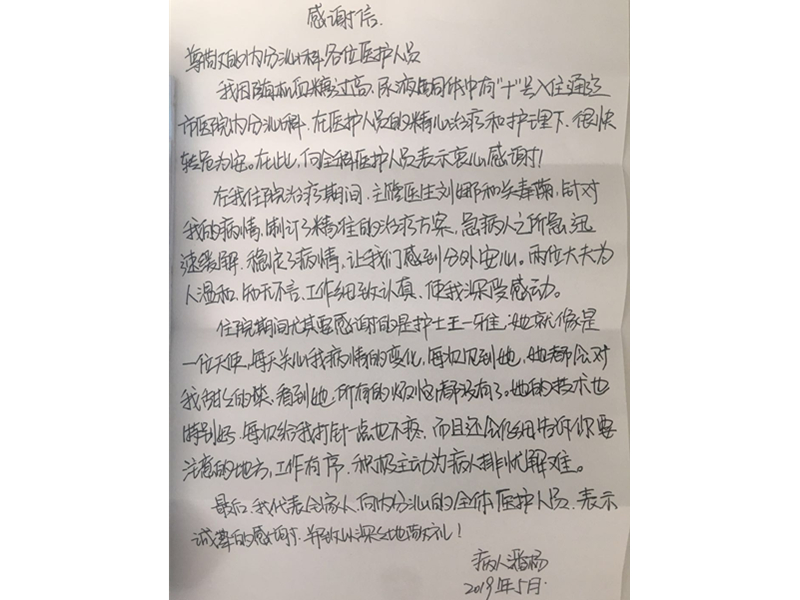 感谢信.
尊敬的内分泌科各位医护人员
我因随机血糖过高、尿液酮体中有"+"号入住通辽
市医院内分泌科.在医护人员的精心治疗和护理下、很快
转危为安。在此,向全科医护人员表示衷心感谢!
在我住院治疗期间,主管医生刘娜和关春菊,针对
我的病情,制订了精准的治疗方案,急病人之所急,迅
速缓解、稳定了病情,让我们感到分外安心。两位大夫为
人温和、知无不言、工作细致认真、使我深受感动。
住院期间尤其要感谢的是护士王一雅,她就像是
一位天使,每天关心我病情的变化,每次见到她,她都会对
我甜甜的笑,看到她,所有的烦恼都没有了。她的技术也
特别好、每次给我打针一点也不疼、而且还会仔细告诉你要
注意的地方,工作有序、积极主动为病人排忧解难。
最后,我代表全家人、向内分泌的全体医护人员、表示
诚挚的感谢、并致以深深地敬礼!
病人潘杨
2019年5月.